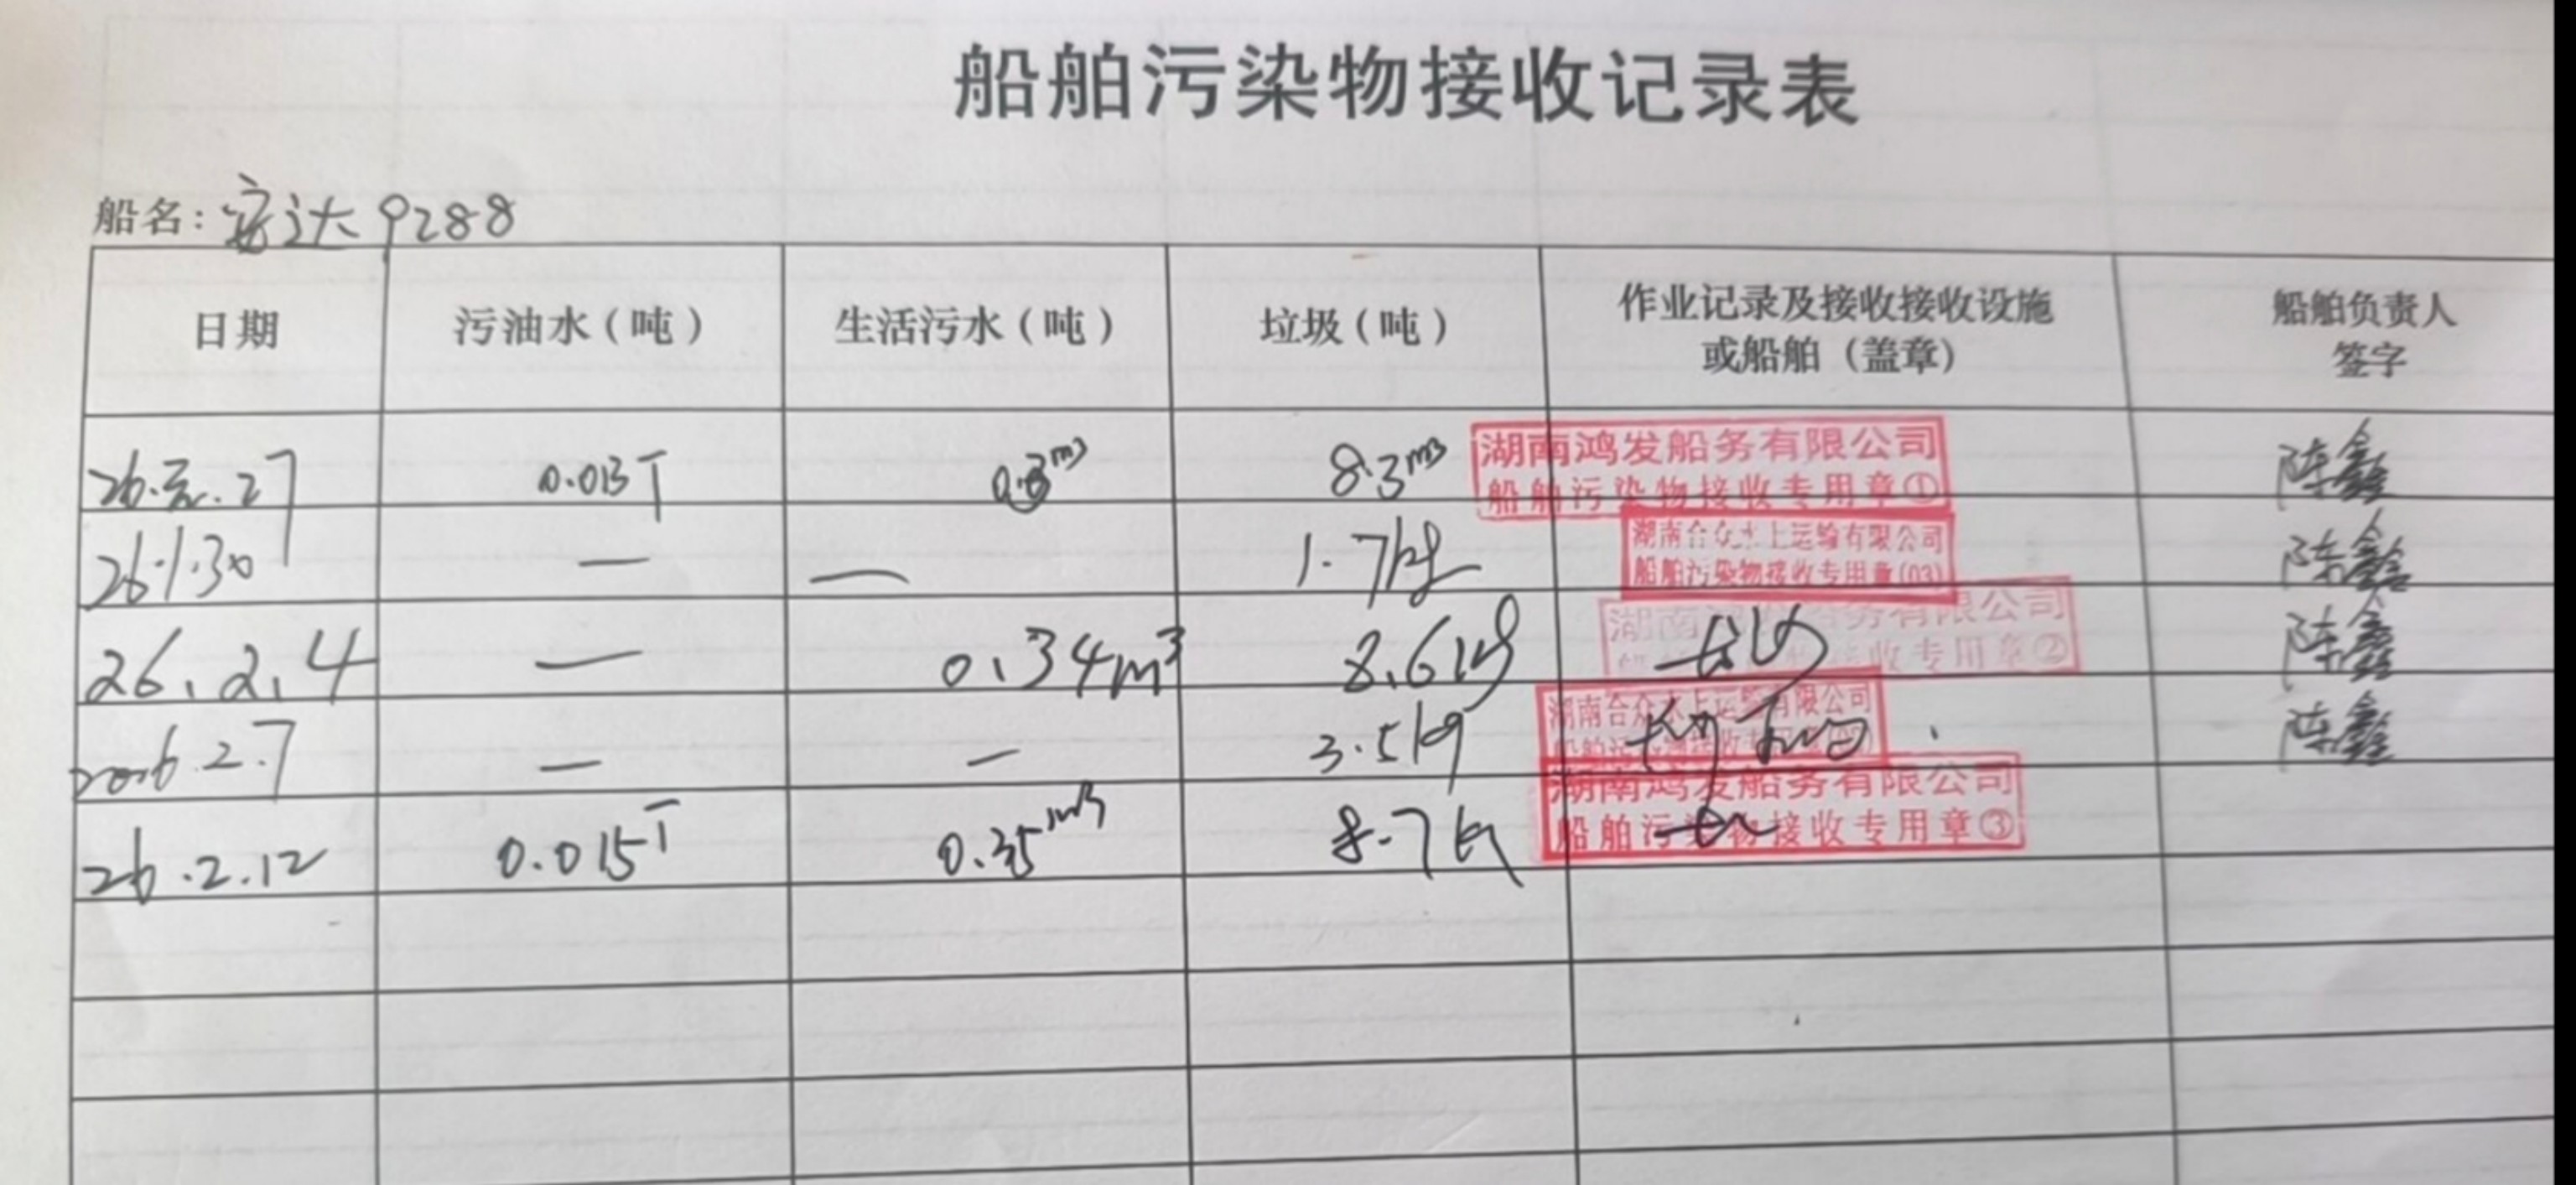 船舶污染物接收记录表
船名: 宏达9288
日期 污油水（吨） 生活污水（吨） 垃圾（吨） 作业记录及接收接收设施或船舶（盖章） 船舶负责人签字
26.元.27 0.013T 0.3m³ 8.3m³ 湖南鸿发船务有限公司 船舶污染物接收专用章① 陈鑫
26.1.30 — — 1.7kg 湖南合众水上运输有限公司 船舶污染物接收专用章(03) 陈鑫
26.2.4 — 0.34m³ 8.6kg 湖南 务有限公司 接收专用章② 陈鑫
2026.2.7 — — 3.5kg 湖南合众水上运输有限公司 陈鑫
26.2.12 0.015T 0.35m³ 8.7kg 湖南鸿发船务有限公司 船舶污染物接收专用章③